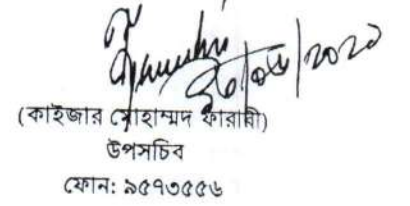 ২৬/০৮/২০২১
(কাইজার মোহাম্মদ ফারাবী)
উপসচিব
ফোন: ৯৫৭৩৫৫৬